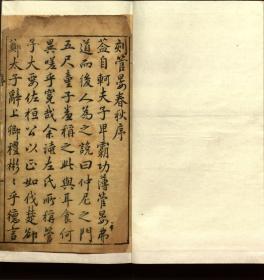 刻管晏春秋序
蓋自軻夫子卑霸功薄管晏弗
道而後人為之說曰仲尼之門
五尺童子羞稱之此與耳食何
異嗟乎寃哉余讀左氏所稱管
子大要佐桓公以正如伐楚卻
鄭太子辭上卿禮彬〻乎德言